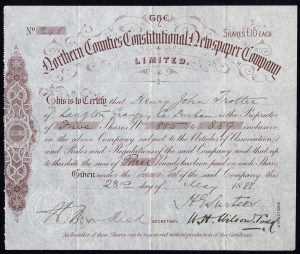 THE
SHARES £10 EACH
No 241
Northern Counties Constitutional Newspaper Company
LIMITED.
This is to Certify that Henry John Trotter
of Langton Grange, Co. Durham is the Proprietor
of Five Shares Nos 855 to 859 inclusive
in the above Company subject to the Articles of Association
and Rules and Regulations of the said Company and that up
to this date the sum of Three Pounds has been paid on each Share.
Given under the Common Seal of the said Company This
23rd day of May 1881
SECRETARY
W. H. Wilson Todd
No Transfer of these Shares can be registered without production of this Certificate.